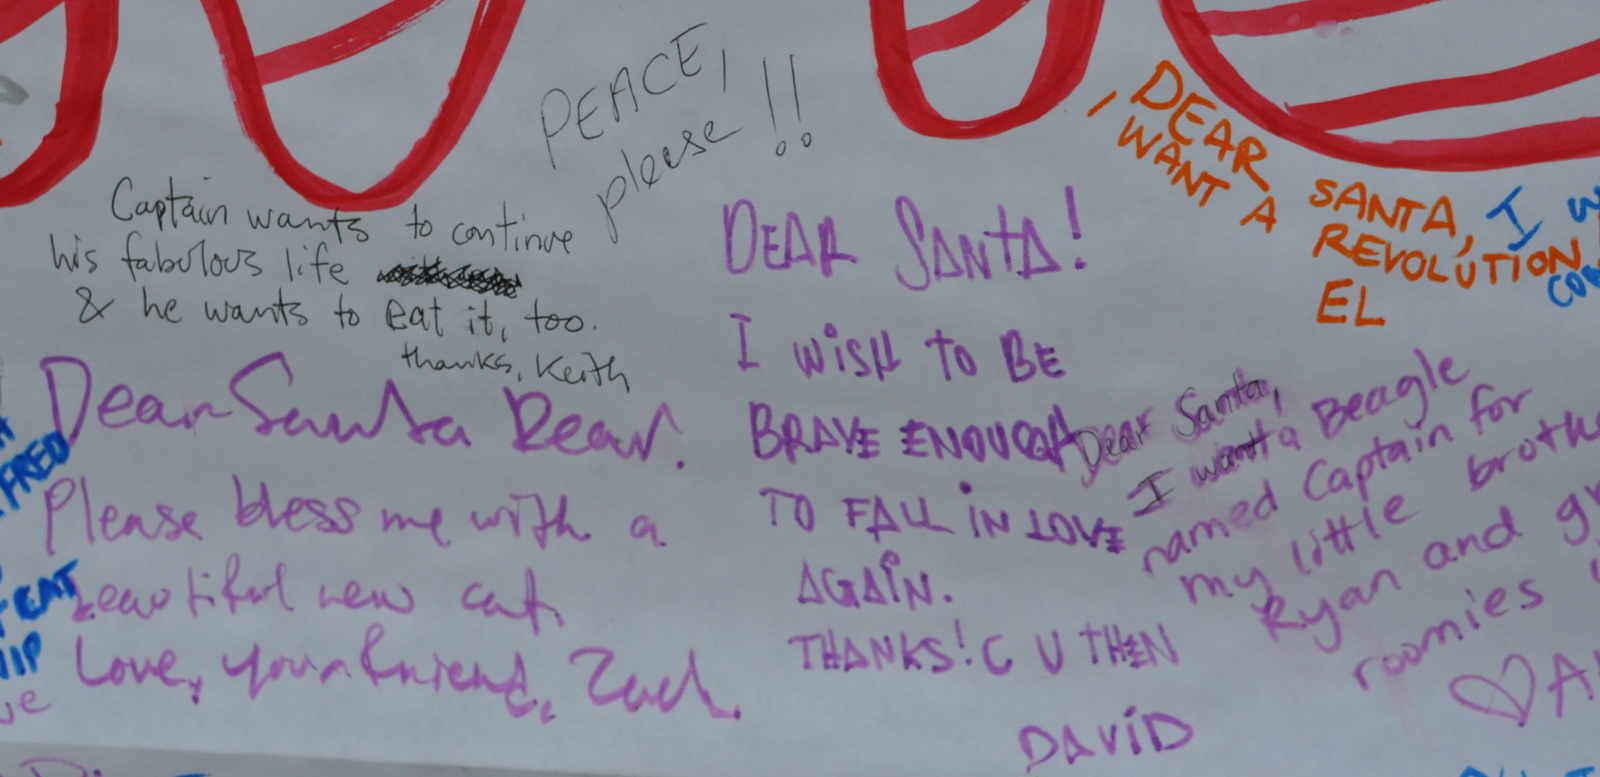 PEACE,
please!!
Captain wants to continue
his fabulous life
& he wants to eat it, too.
thanks, Keith
Dear Santa Dear.
Please bless me with a
beautiful new cat.
Love, your friend, Zach.
DEAR SANTA!
I WISH TO BE
BRAVE ENOUGH
TO FALL IN LOVE
AGAIN.
THANKS! C U THEN
DAVID
DEAR SANTA,
I WANT A REVOLUTION
EL
Dear Santa,
I want a Beagle
named Captain for
my little
Ryan and
roomies
I
FRED
EAT